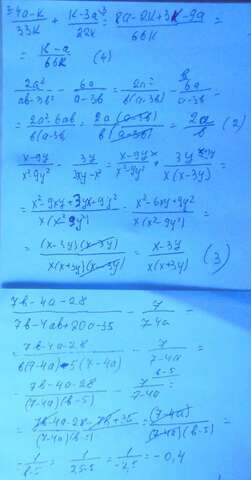 4a-k/33k + k-3a/22k = 8a-2k+3k-9a/66k =
= k-a/66k (4)
2a²/ab-3b² - 6a/a-3b = 2a²/b(a-3b) - 6a/a-3b =
= 2a²-6ab/b(a-3b) = 2a(a-3b)/b(a-3b) = 2a/b (2)
x-9y/x²-9y² - 3y/3xy-x² = x-9y/x²-9y² + 3y/x(x-3y) =
= x²-9xy+3xy+9y²/x(x²-9y²) = x²-6xy+9y²/x(x²-9y²) =
= (x-3y)(x-3y)/x(x+3y)(x-3y) = x-3y/x(x+3y) (3)
7b-4a-28/7b-4ab+20a-35 - 7/7-4a =
= 7b-4a-28/b(7-4a)-5(7-4a) - 7/7-4a =
= 7b-4a-28/(7-4a)(b-5) - 7/7-4a =
= 7b-4a-28-7b+35/(7-4a)(b-5) = (7-4a)/(7-4a)(b-5) =
= 1/b-5 = 1/2,5-5 = 1/-2,5 = -0,4